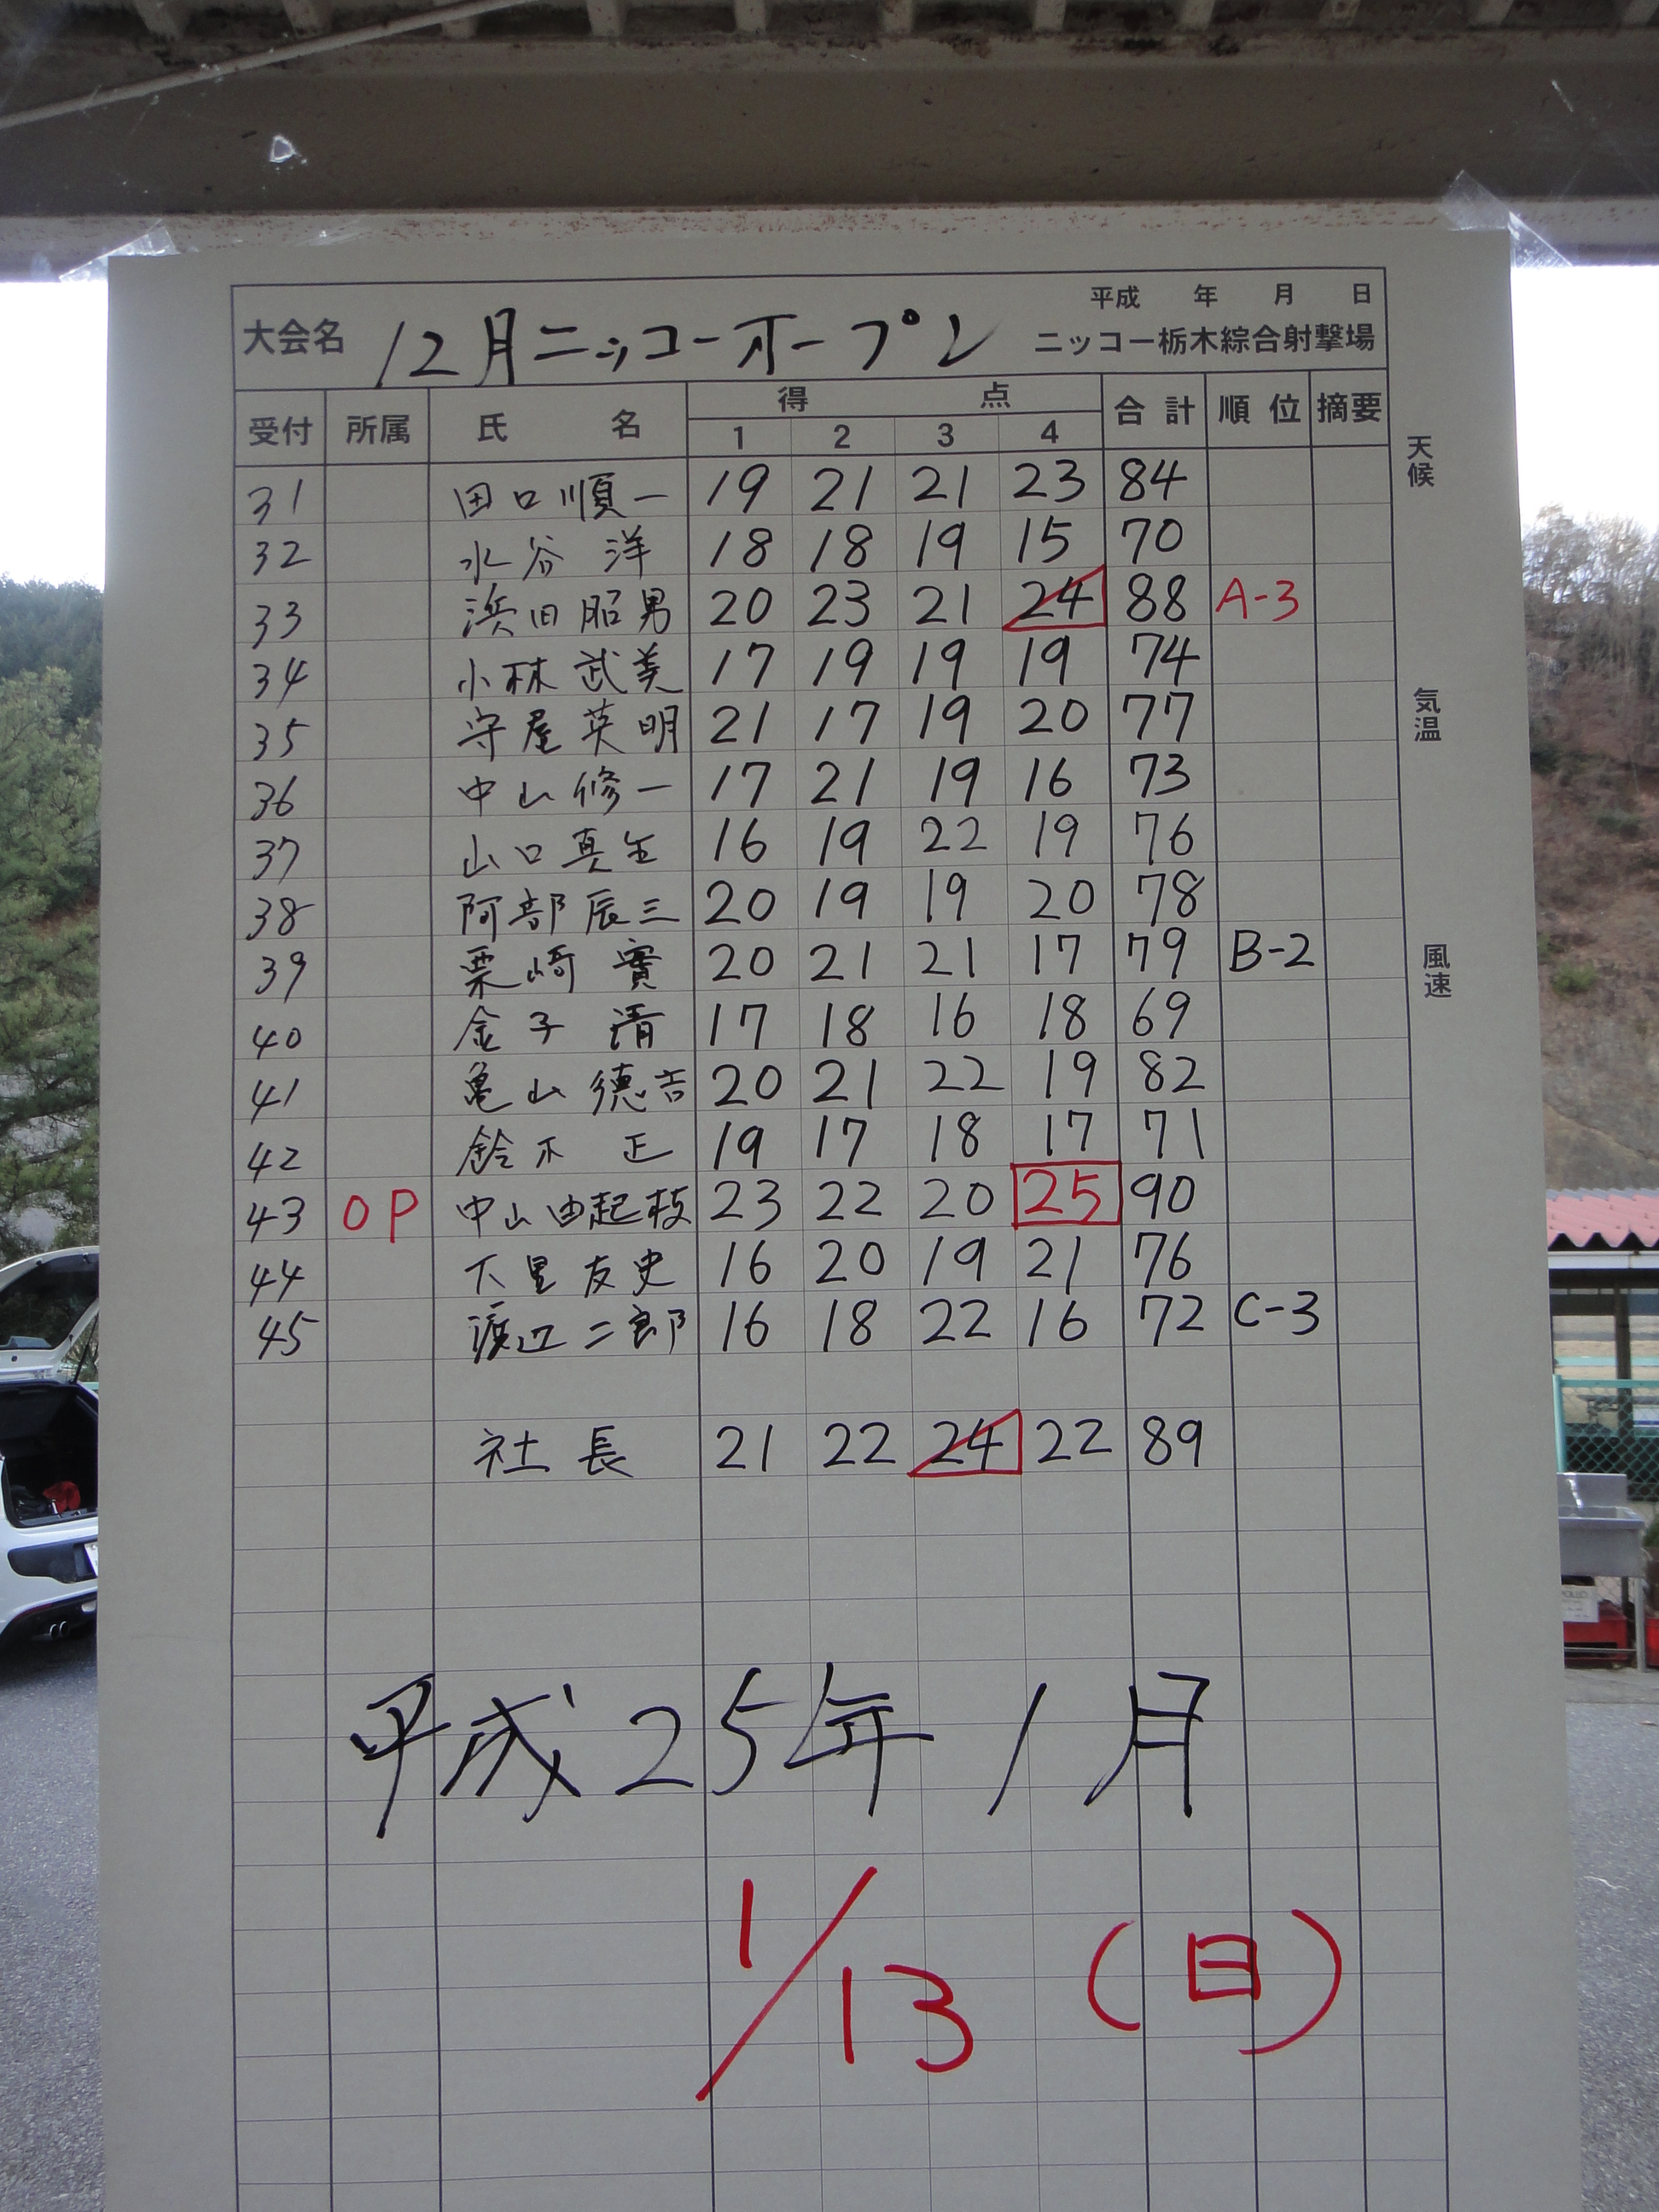 平成 年 月 日
大会名 12月ニッコーオープン ニッコー栃木綜合射撃場
受付 所属 氏 名 得 点 合計 順位 摘要
1 2 3 4
天候
31 田口順一 19 21 21 23 84
32 水谷 洋 18 18 19 15 70
33 浜田昭男 20 23 21 24 88 A-3
34 小林武美 17 19 19 19 74
気温
35 守屋英明 21 17 19 20 77
36 中山修一 17 21 19 16 73
37 山口真 16 19 22 19 76
38 阿部辰三 20 19 19 20 78
39 栗崎 實 20 21 21 17 79 B-2
風速
40 金子 清 17 18 16 18 69
41 亀山徳吉 20 21 22 19 82
42 鈴木 正 19 17 18 17 71
43 OP 中山由起枝 23 22 20 25 90
44 下里友史 16 20 19 21 76
45 渡辺二郎 16 18 22 16 72 C-3
社長 21 22 24 22 89
平成25年1月
1/13 (日)